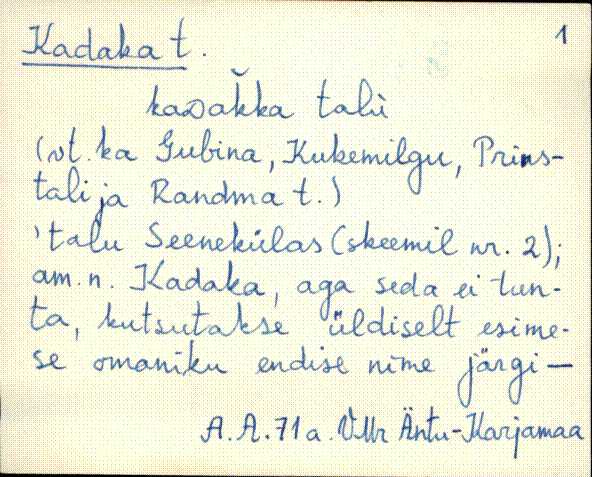 Kadaka t. 1
kaᴅak̆ka talù
(vt. ka Gubina, Kukemilgu, Prins-
tali ja Randma t.)
'talu Seenekülas (skeemil nr. 2);
am. n. Kadaka, aga seda ei tun-
ta, kutsutakse üldiselt esime-
se omaniku endise nime järgi —
A.A. 71 a. VMr Äntu-Karjamaa